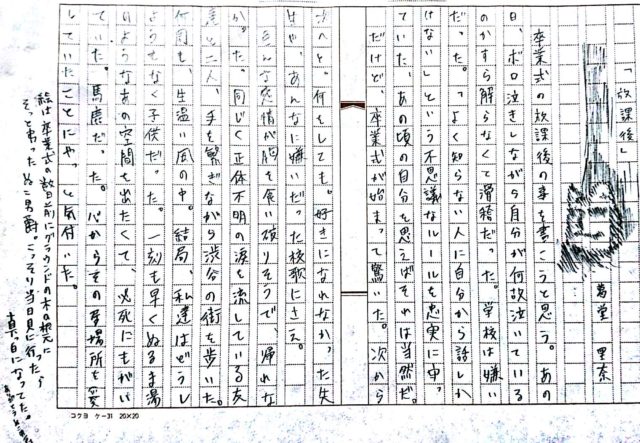 「放課後」
里奈
卒業式の放課後の事を書こうと思う。あの
日、ボロ泣きしながら自分が何故泣いている
のかすら解らなくて滑稽だった。学校は嫌い
だった。「よく知らない人に自分から話しか
けない」という不思議なルールを忠実に守っ
ていた、あの頃の自分を思えばそれは当然だ。
だけど、卒業式が始まって驚いた。次から
次へと。何をしても。好きになれなかった先
生や、あんなに嫌いだった校歌にさえ。
色んな感情が胸を食い破りそうで、帰れな
かった。同じく正体不明の涙を流している友
達と二人、手を繋ぎながら渋谷の街を歩いた。
何周も、生温い風の中。結局、私達はどうし
ようもなく子供だった。一刻も早くぬるま湯
のようなあの空間を出たくて、必死にもがい
ていた。馬鹿だった。心からその居場所を愛
していたことにやっと気付いた。
絵は卒業式の数日前にグラウンドの木の根元に
そっと弔ったぬこ男爵。こっそり当日見に行ったら
真っ白になってた。
コクヨ ケー31 20×20